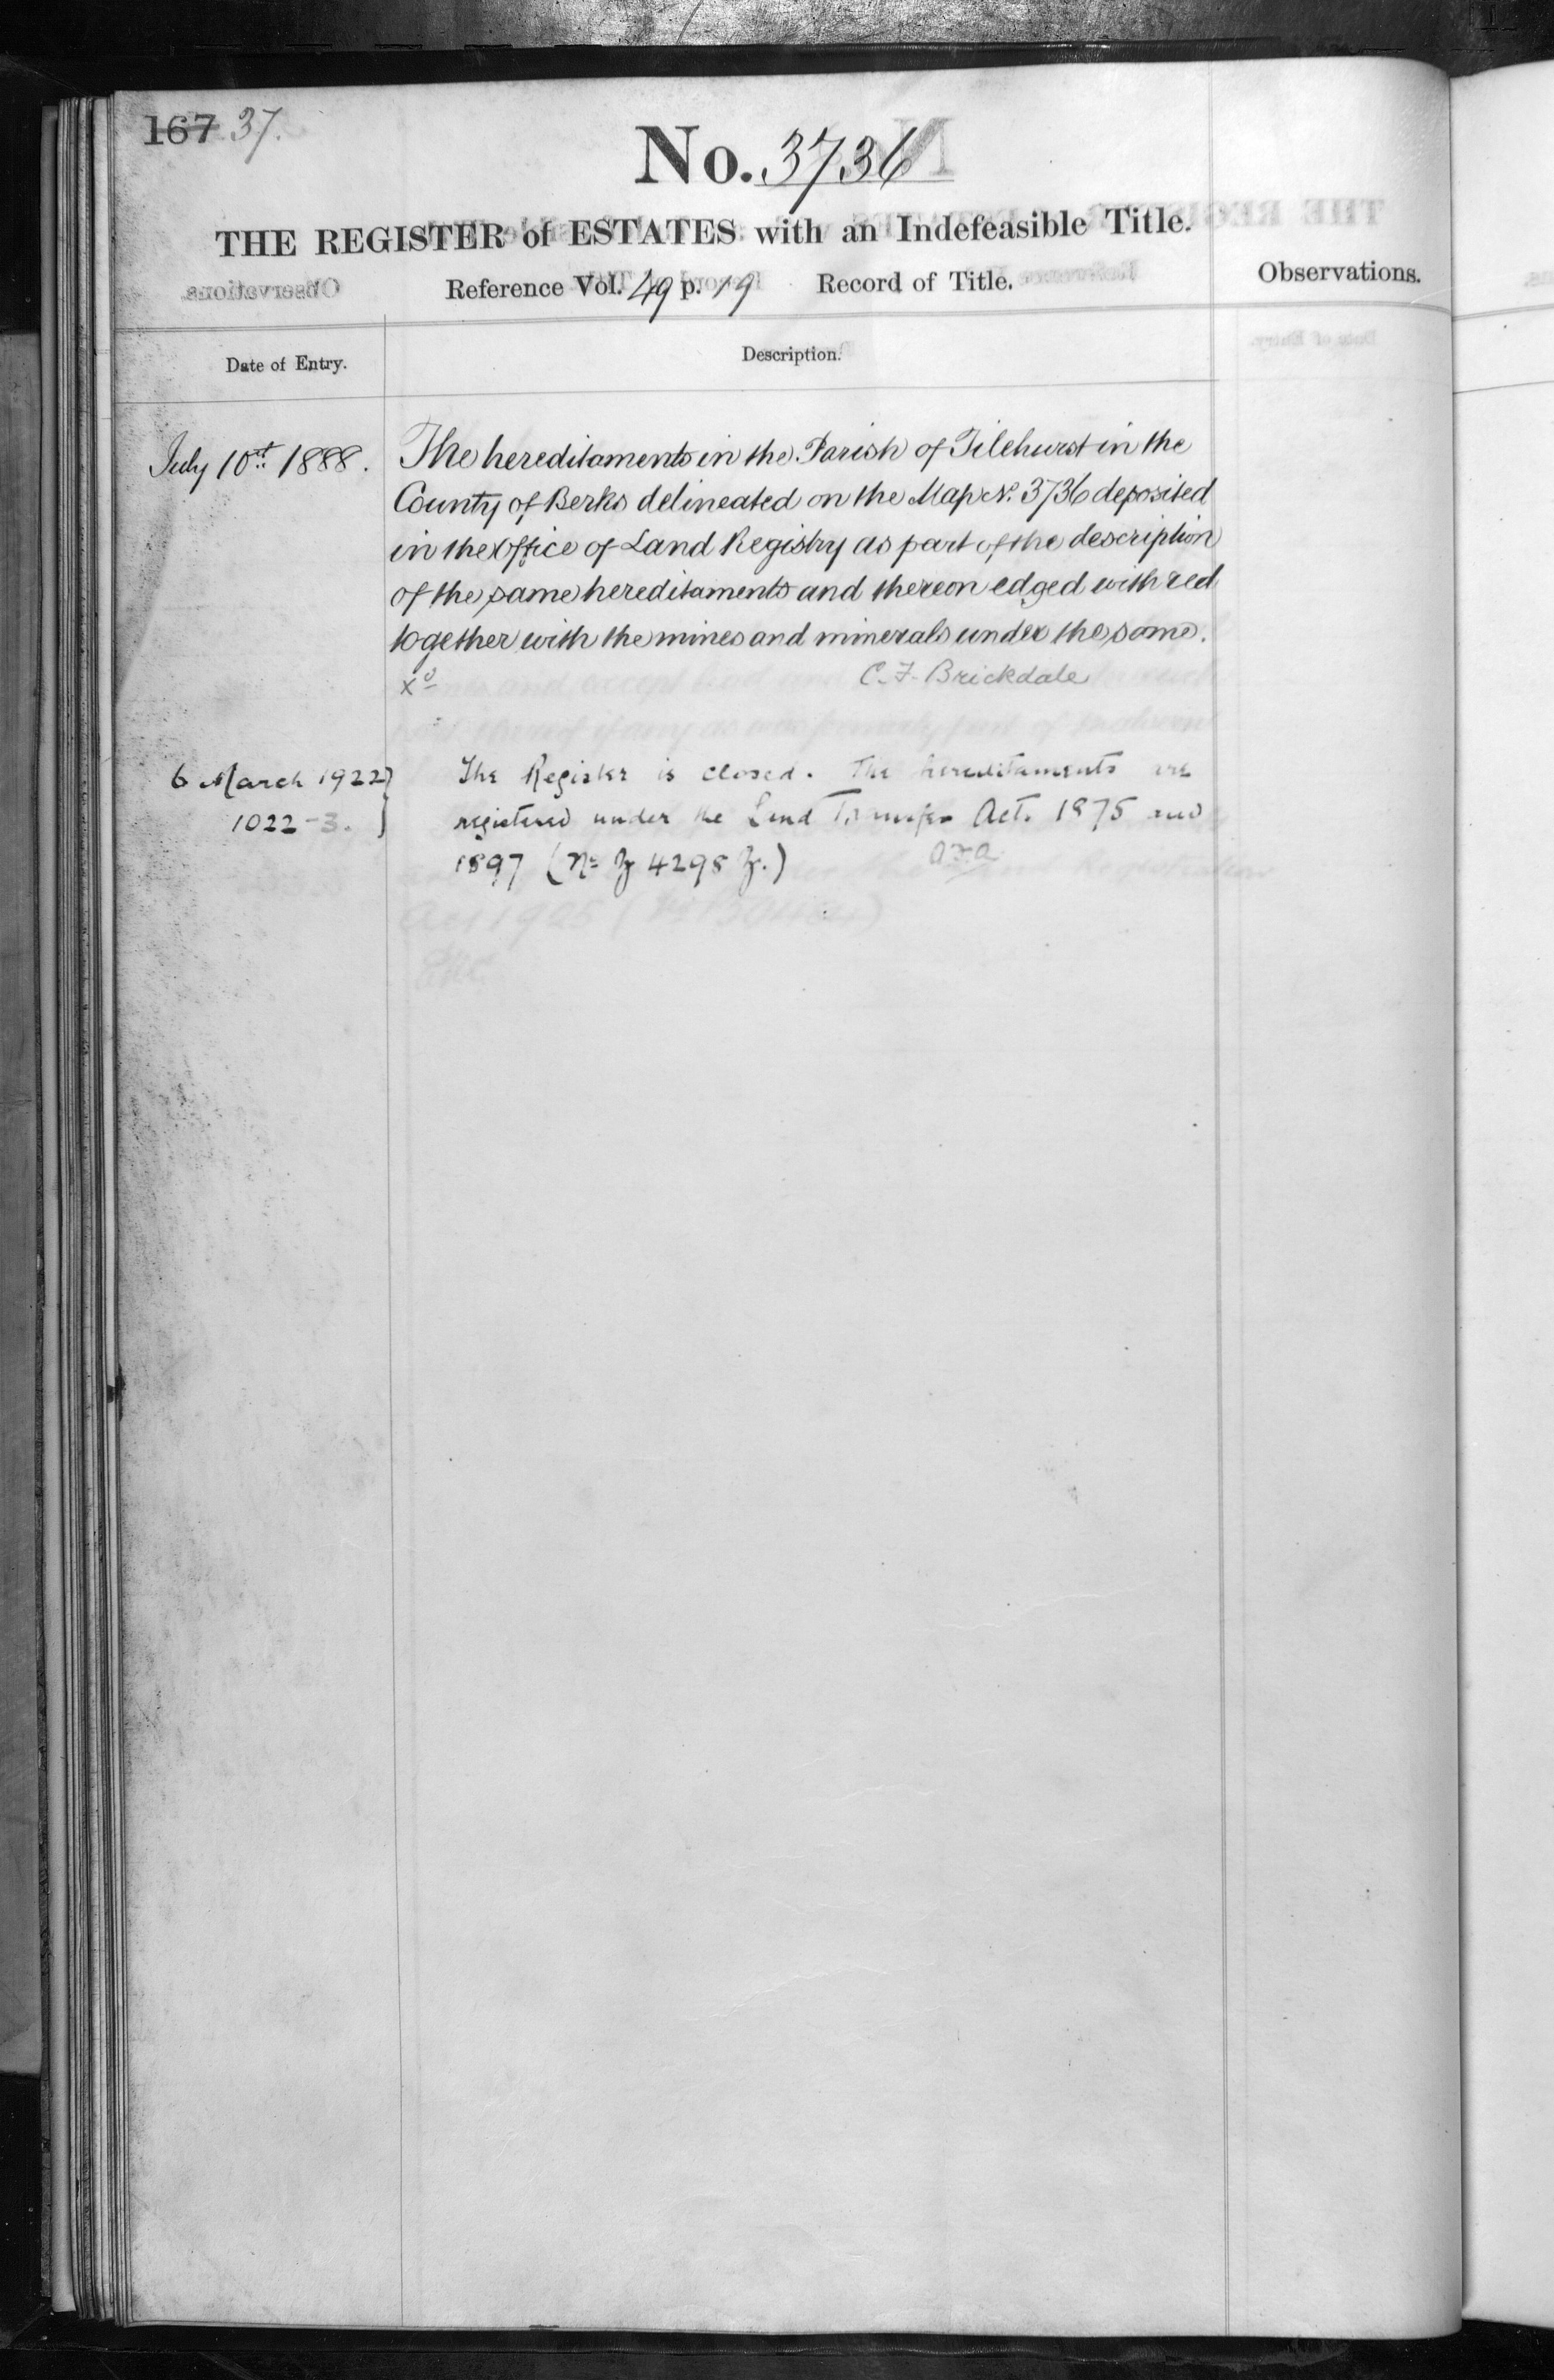 167 37.
No. 3736
THE REGISTER of ESTATES with an Indefeasible Title.
Reference Vol. 49 p. 19 Record of Title.
Observations.
Date of Entry.
Description.
July 10st 1888.
The hereditaments in the Parish of Tilehurst in the
County of Berks delineated on the Map No. 3736 deposited
in the Office of Land Registry as part of the description
of the same hereditaments and thereon edged with red
together with the mines and minerals under the same.
C. F. Brickdale
6 March 1922
1022-3.
The Register is closed. The hereditaments are
registered under the Land Transfer Acts 1875 and
1897 (No 4298